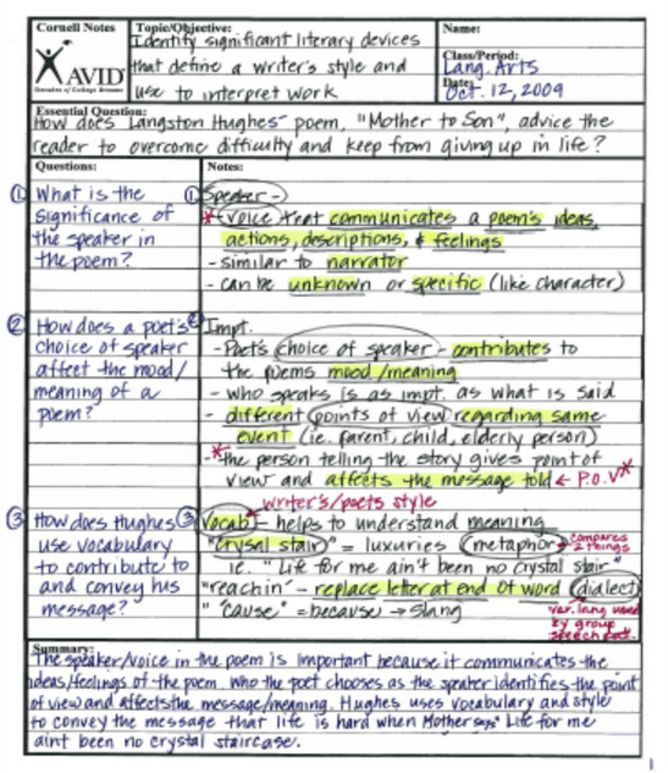 Cornell Notes
AVID
Decades of College Dreams
Topic/Objective:
Identify significant literary devices
that define a writer's style and
use to interpret work
Name:
Class/Period:
Lang. Arts
Date:
Oct. 12, 2009
Essential Question:
How does Langston Hughes' poem, "Mother to Son", advice the
reader to overcome difficulty and keep from giving up in life?
Questions:
① What is the
significance of
the speaker in
the poem?
② How does a poet's
choice of speaker
affect the mood/
meaning of a
poem?
③ How does Hughes
use vocabulary
to contribute to
and convey his
message?
Notes:
① Speaker -
* (voice that communicates a poem's ideas,
actions, descriptions, & feelings
- similar to narrator
- can be unknown or specific (like character)
② Impt.
- Poet's choice of speaker - contributes to
the poems mood/meaning
- who speaks is as impt. as what is said
- different points of view regarding same
event (ie. parent, child, elderly person)
- * the person telling the story gives point of
view and affects the message told ← P.O.V *
writer's/poets style
③ Vocab * - helps to understand meaning
"crysal stair" = luxuries (metaphor) - compares
2 things
ie. "Life for me ain't been no crystal stair"
"reachin" - replace letter at end of word (dialect)
" 'cause" = because → slang
var. lang used
by group
speech pat.
Summary:
The speaker/voice in the poem is important because it communicates the
ideas/feelings of the poem. Who the poet chooses as the speaker identifies the point
of view and affects the message/meaning. Hughes uses vocabulary and style
to convey the message that life is hard when Mother says "Life for me
aint been no crystal staircase.
1